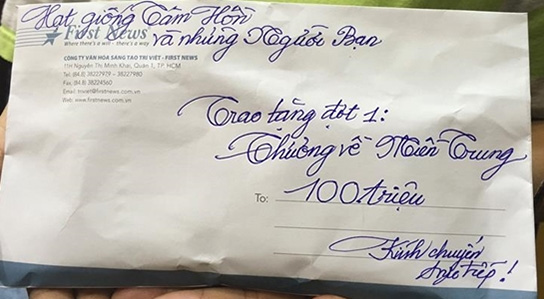 Hạt giống Tâm Hồn
First News
và những Người Bạn
Where there's a will - there's a way
CÔNG TY VĂN HÓA SÁNG TẠO TRÍ VIỆT - FIRST NEWS
11H Nguyễn Thị Minh Khai, Quận 1, TP. HCM
Tel: (84.8) 38227979 – 38227980
Fax: (84.8) 38224560
Email: triviet@firstnews.com.vn
Web: www.firstnews.com.vn
Trao tặng đợt 1:
Thương về Miền Trung
To: 100 triệu
Kính chuyển
trực tiếp!